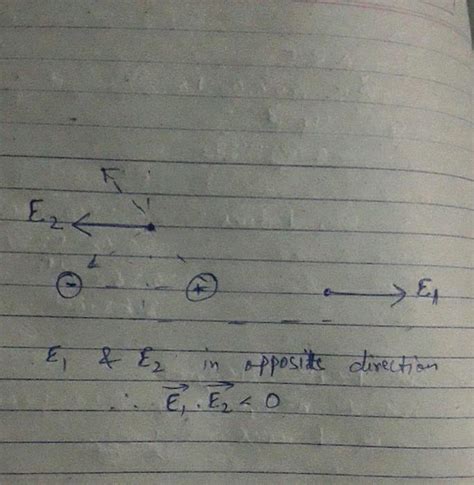 E₂
⊖ ⊕ E₁
E₁ & E₂ in opposite direction
∴ E₁⃗ . E₂⃗ < 0